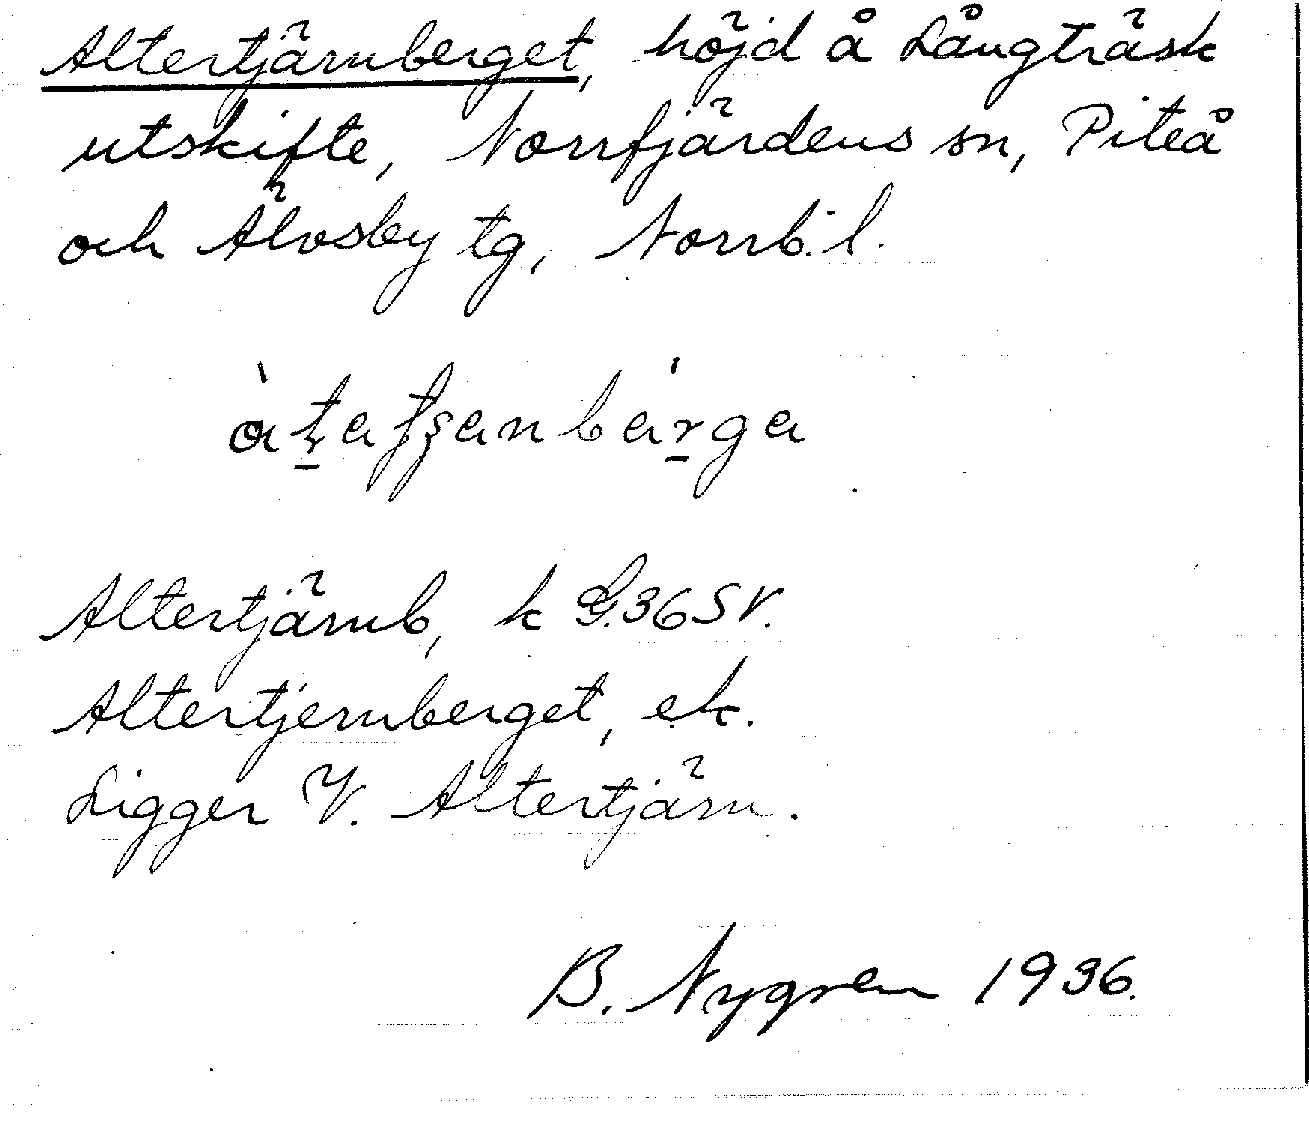 Altertjärnberget, höjd å Långträsk
utskifte, Norrfjärdens sn, Piteå
och Älvsby tg, Norrb. l.
Altertjärnb, k G.36SV.
Altertjernberget, ek.
Ligger V. Altertjärn.
B. Nygren 1936.